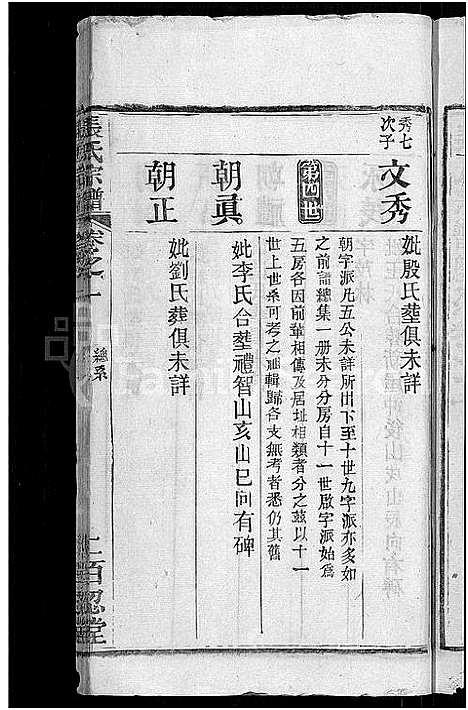 秀七次子
文秀
妣殷氏塟俱未詳
第四世
朝字派凡五公未詳所出下至十世九字派亦多如
之前譜總集一册未分分房自十一世啟字派始爲
五房各因前輩相傳及居址相𩔖者分之茲以十一
世上世系可考之𣲖輯歸各支無考者悉仍其舊
朝眞
妣李氏合塟禮智山亥山巳向有碑
朝正
妣劉氏葬俱未詳
張氏宗譜
卷之一
總系
百忍堂